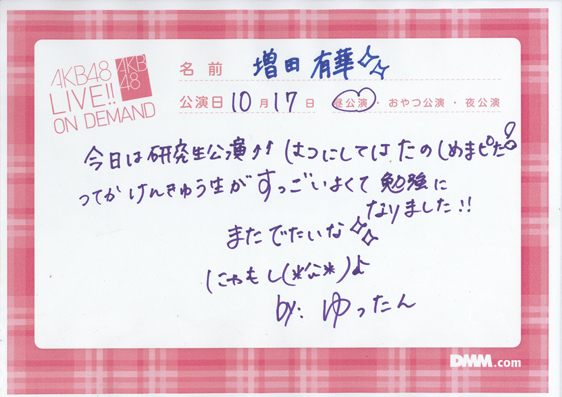 AKB48
LIVE!!
ON DEMAND
AKB
48
名前 増田 有華
公演日 10月17日 昼公演・おやつ公演・夜公演
今日は研究生公演♪♪ はつにしては たのしめました!
ってか けんきゅう生が すっごいよくて 勉強に
なりました!!
またでたいな
にゃもし(*
by: ゆったん
DMM.com